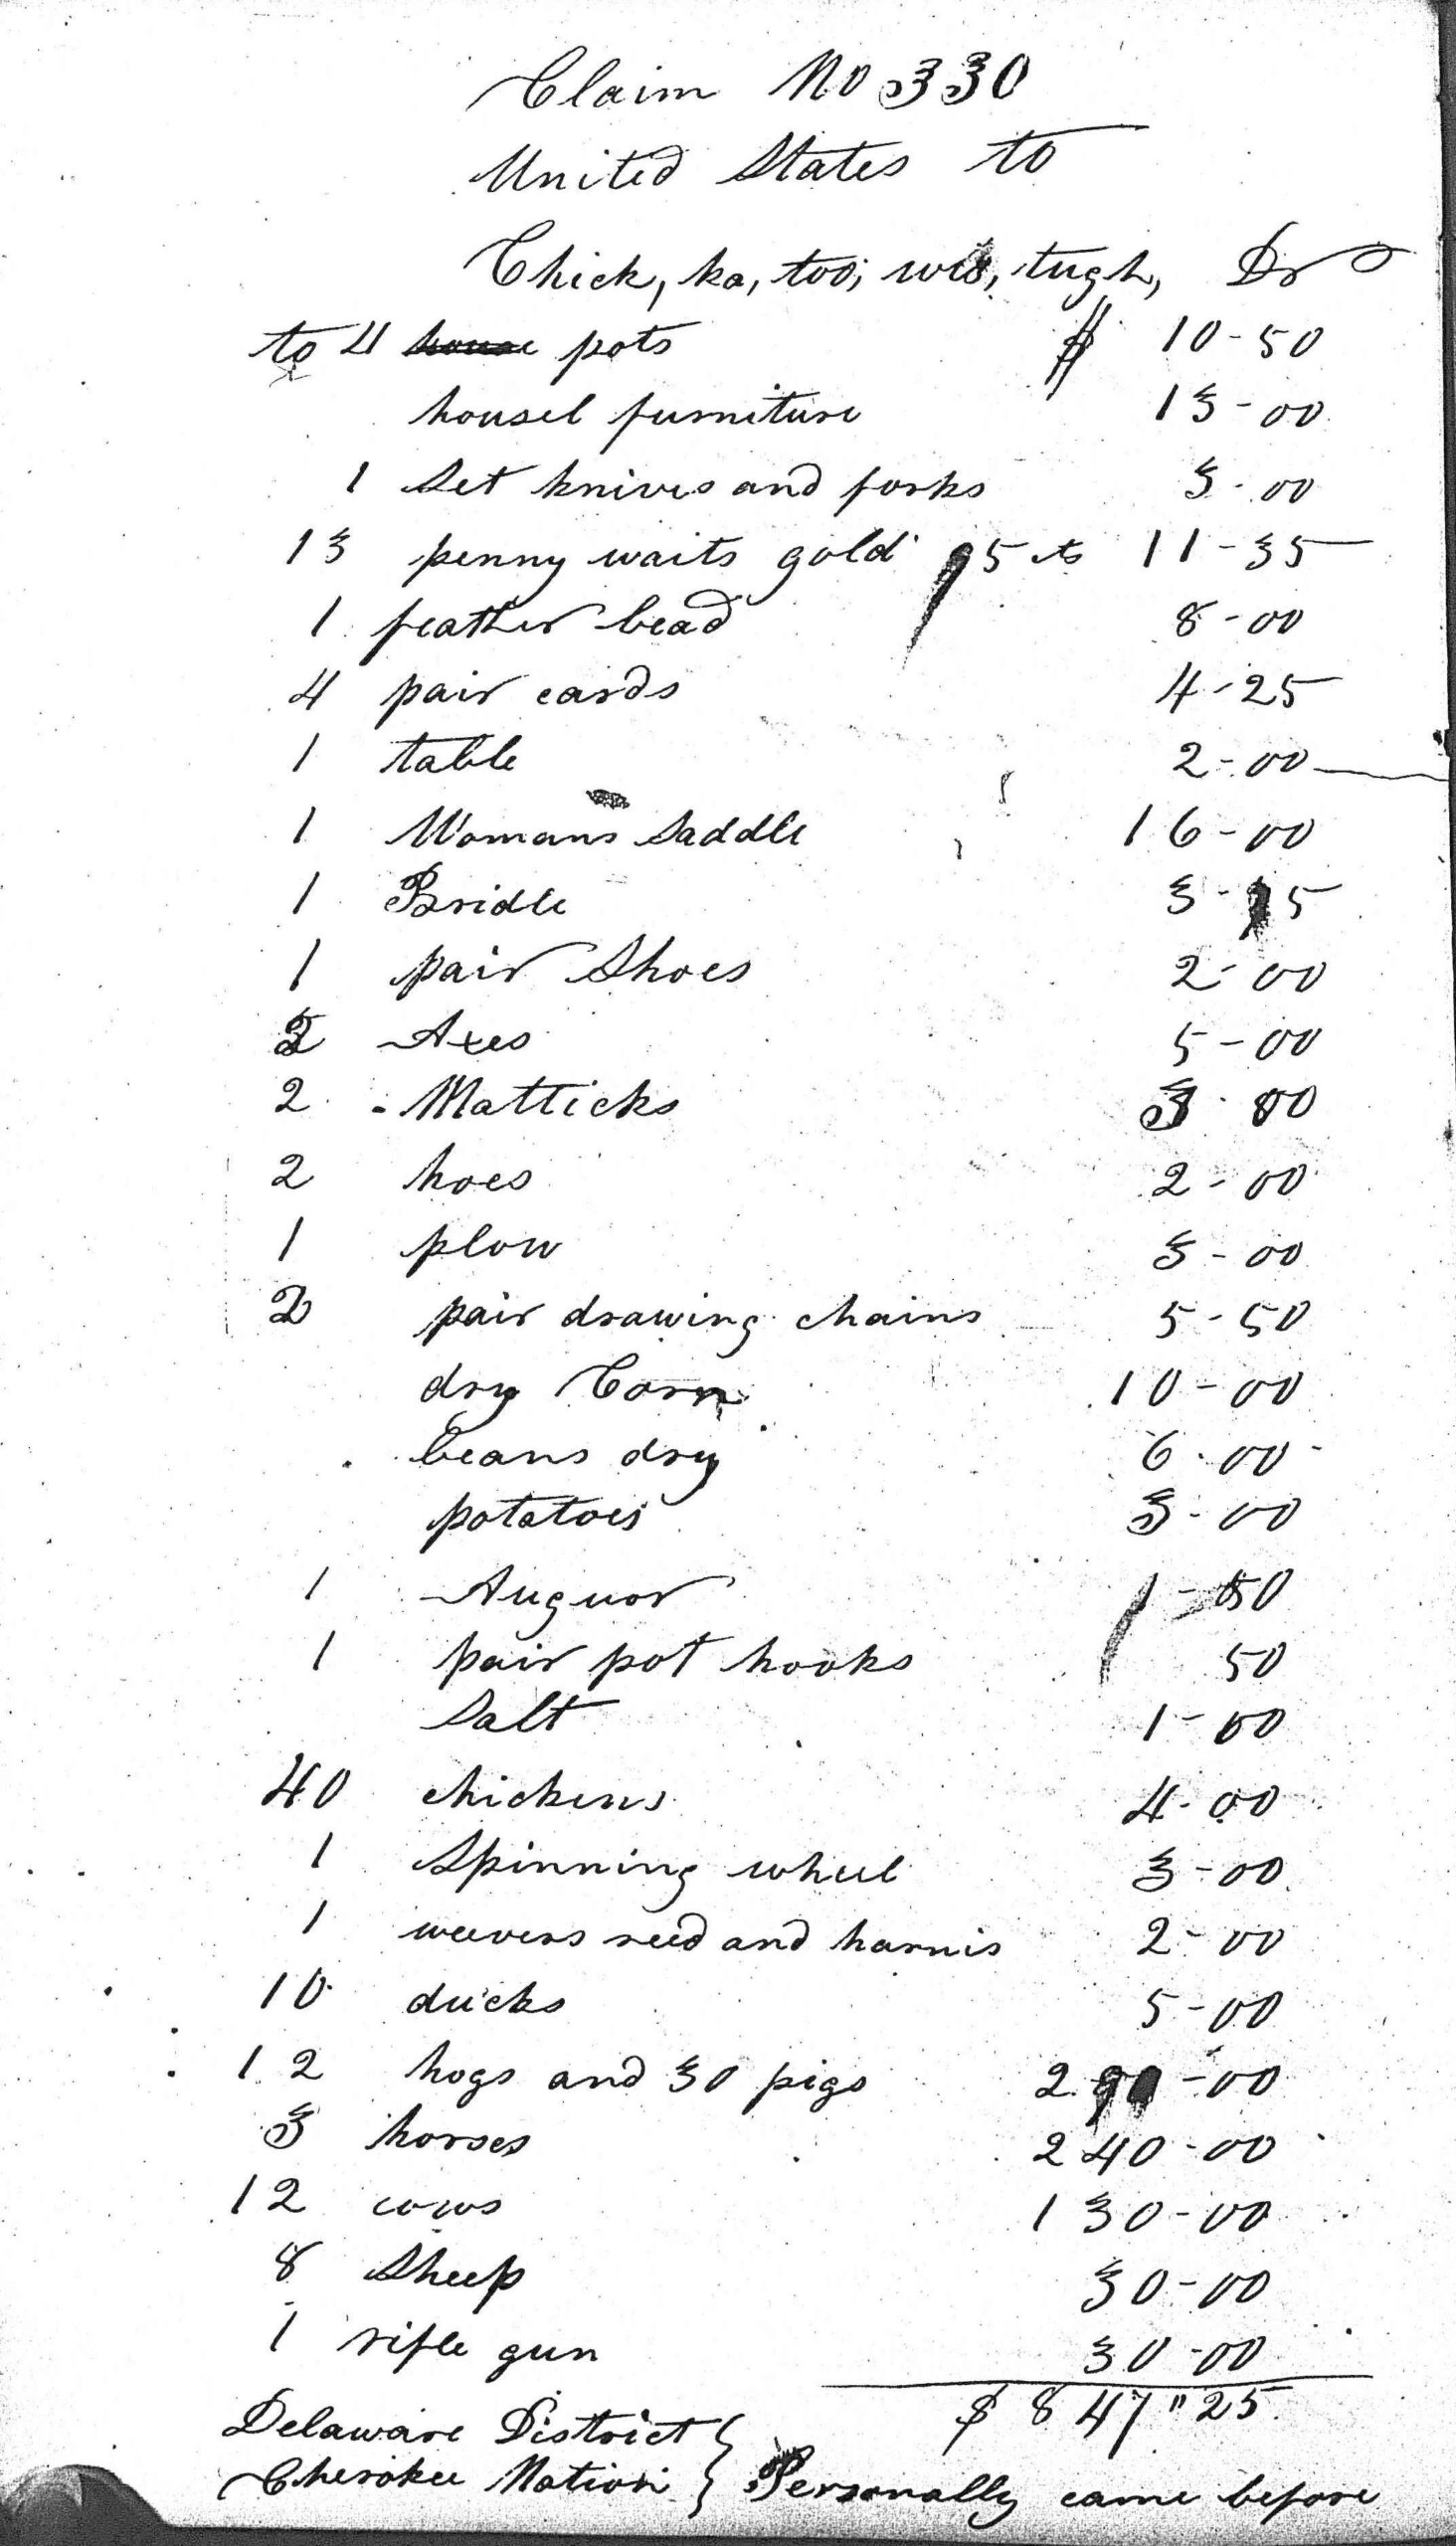 Claim No 330
United States to
Chick, ka, too, wis, tugh, Dr
to 4 pots $ 10-50
housel furniture 13-00
1 Set knives and forks 3-00
13 penny waits gold 95 cts 11-35
1 feather bead 8-00
4 pair cards 4-25
1 table 2-00
1 Womans Saddle 16-00
1 Bridle
1 pair Shoes 2-00
2 Axes 5-00
2 Matticks 3-00
2 hoes 2-00
1 plow 3-00
2 pair drawing chains 5-50
dry Corn 10-00
beans dry 6-00
potatoes 3-00
1 Auguor 1-50
1 pair pot hooks 50
Salt 1-00
40 chickens 4-00
1 Spinning wheel 3-00
1 weevers reed and harnis 2-00
10 ducks 5-00
12 hogs and 30 pigs 290-00
3 horses 240-00
12 cows 130-00
8 Sheep 30-00
1 rifle gun 30-00
$ 847"25
Delaware District }
Cherokee Nation } Personally came before